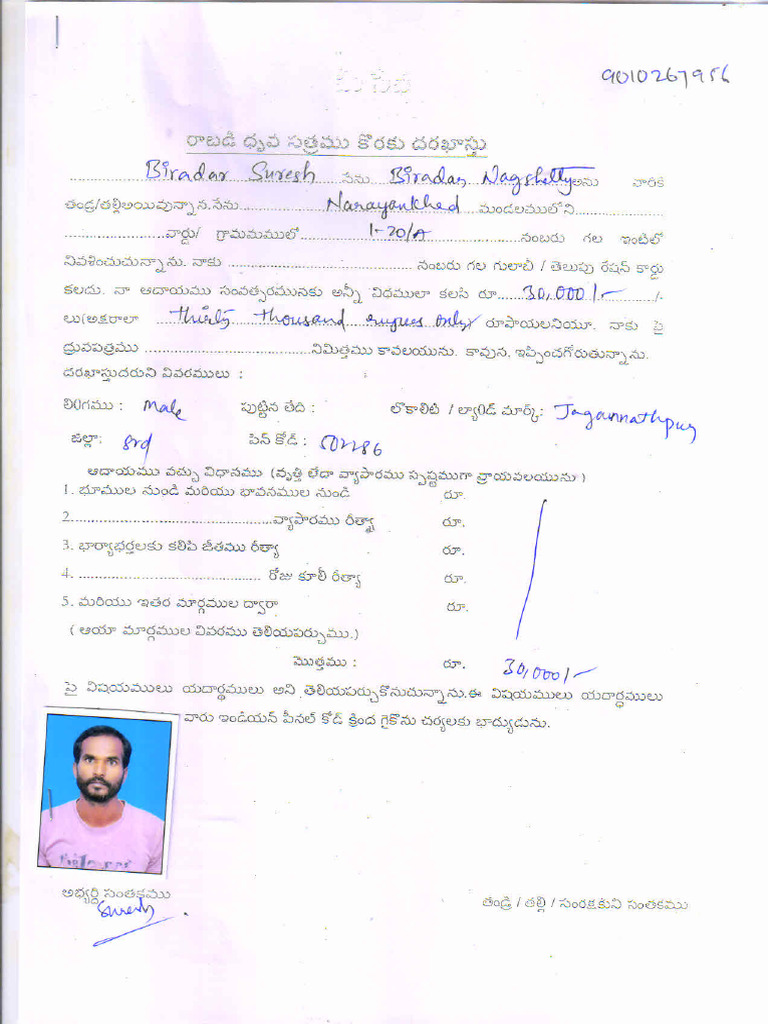 9010267956
మీ సేవ
రాబడి ధృవ పత్రము కొరకు దరఖాస్తు
Biradar Suresh నేను Biradar Nagshetty అను వారికి
తండ్రి/తల్లిఅయివున్నాన.నేను Narayankhed మండలములోని
వార్డు/ గ్రామమములో 1-20/A నంబరు గల ఇంటిలో
నివశించుచున్నాను. నాకు నంబరు గల గులాబీ / తెలుపు రేషన్ కార్డు
కలదు. నా ఆదాయము సంవత్సరమునకు అన్నీ విధములా కలసి రూ. 30,000/- /-
లు(అక్షరాలా thirty thousand rupees only) రూపాయలనియూ. నాకు పై
ధ్రువపత్రము నిమిత్తము కావలయును. కావున, ఇప్పించగోరుతున్నాను.
దరఖాస్తుదరుని వివరములు :
లింగము : male పుట్టిన తేది : లొకాలిటి / ల్యాండ్ మార్క్: Jagannathpur
జిల్లా: srd పిన్ కోడ్ : 502286
ఆదాయము వచ్చు విధానము (వృత్తి లేదా వ్యాపారము స్పష్టముగా వ్రాయవలయును)
1. భూముల నుండి మరియు భావనముల నుండి రూ.
2. వ్యాపారము రీత్యా రూ.
3. భార్యాభర్తలకు కలిపి జీతము రీత్యా రూ.
4. రోజు కూలీ రీత్యా రూ.
5. మరియు ఇతర మార్గముల ద్వారా రూ.
( ఆయా మార్గముల వివరము తెలియపర్చుము.)
మొత్తము : రూ. 30,000/-
పై విషయములు యదార్థములు అని తెలియపర్చుకొనుచున్నాను.ఈ విషయములు యదార్ధములు
వారు ఇండియన్ పీనల్ కోడ్ క్రింద గైకొను చర్యలకు బాద్యుడును.
అభ్యర్ధి సంతకము
Suresh
తండ్రి / తల్లి / సంరక్షకుని సంతకము